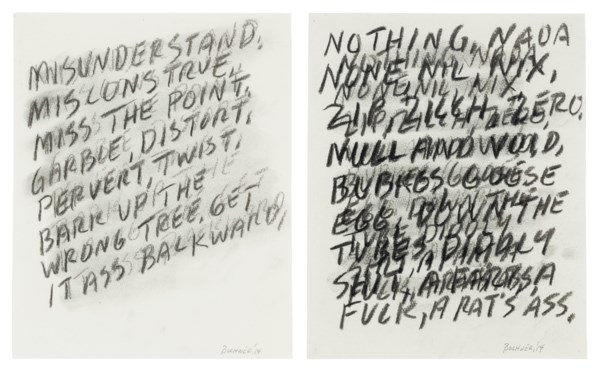 MISUNDERSTAND.
MISCONSTRUE.
MISS THE POINT.
GARBLE, DISTORT,
PERVERT, TWIST.
BARK UP THE
WRONG TREE. GET
IT ASS BACKWARD,
BOCHNER '14
NOTHING, NADA
NONE, NIL, NIX,
ZIP, ZILCH, ZERO.
NULL AND VOID,
BUBKES, GOOSE
EGG, DOWN THE
TUBES, DIDDLY
SHIT, A
FUCK, A RAT'S ASS.
BOCHNER '14